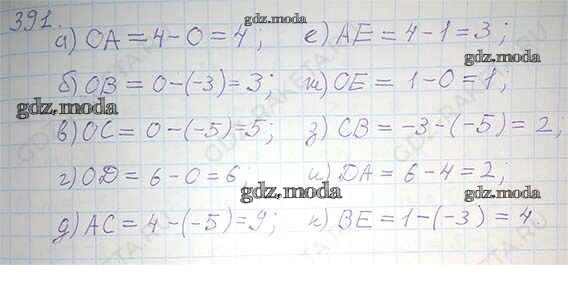 391.
а) OA = 4 - 0 = 4;
б) OB = 0 - (-3) = 3;
в) OC = 0 - (-5) = 5;
г) OD = 6 - 0 = 6,
д) AC = 4 - (-5) = 9;
е) AE = 4 - 1 = 3;
ж) OE = 1 - 0 = 1;
з) CB = -3 - (-5) = 2;
и) DA = 6 - 4 = 2;
к) BE = 1 - (-3) = 4
gdz.moda
gdz.moda
gdz.moda
gdz.moda
gdz.moda
gdz.moda
gdz.moda
gdz.moda